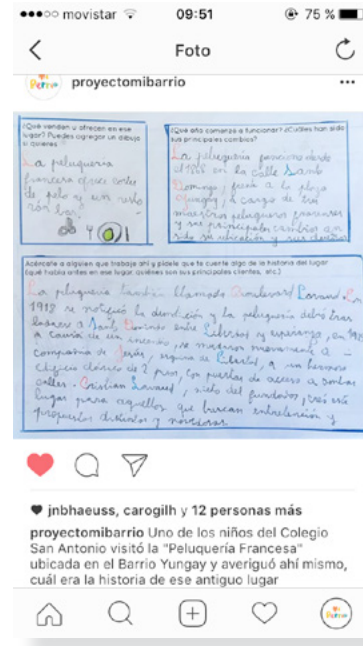 movistar 09:51 75 %
Foto
proyectomibarrio
¿Qué venden u ofrecen en ese
lugar? Puedes agregar un dibujo
si quieres.
La peluquería
francesa ofrece corte
de pelo y un resto
rán bar.
¿Qué año comenzó a funcionar? ¿Cuáles han sido
sus principales cambios?
La peluquería funciona desde
el en la calle Santo
Domingo, frente a la plaza
Yungay, a cargo de tres
maestros peluqueros franceses
y sus principales cambios an
sido su ubicación y sus dueños
Acércate a alguien que trabaje ahí y pídele que te cuente algo de la historia del lugar
(qué había antes en ese lugar, quiénes son sus principales clientes, etc.)
La peluquería también llamada Boulevard Lavaud. En
la y la peluquería debió tras
ladarse a Santo Domingo entre Libertad y esperanza, en
a causa de un incendio, se nuevamente a
compañía de Jesús, esquina de Libertad, a un hermoso
edificio clásico de 2 pisos, con puertas de acceso a ambas
calles. Cristian Lavaud, nieto del fundador, creó este
lugar para aquellos que buscan entretención y
propuestas distintas y novedosas.
jnbhaeuss, carogilh y 12 personas más
proyectomibarrio Uno de los niños del Colegio
San Antonio visitó la "Peluquería Francesa"
ubicada en el Barrio Yungay y averiguó ahí mismo,
cuál era la historia de ese antiguo lugar